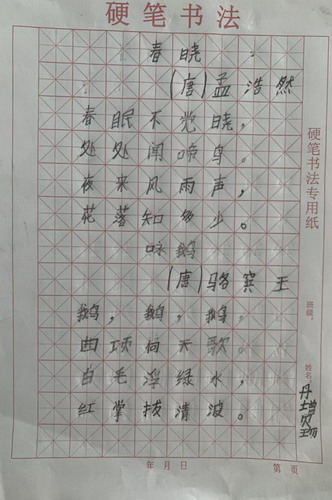 硬笔书法
春晓
(唐)孟浩然
春眠不觉晓,
处处闻啼鸟。
夜来风雨声,
花落知多少。
咏鹅
(唐)骆宾王
鹅,鹅,鹅,
曲项向天歌。
白毛浮绿水,
红掌拨清波。
硬笔书法专用纸
班级:
姓名:
年月日
第 页